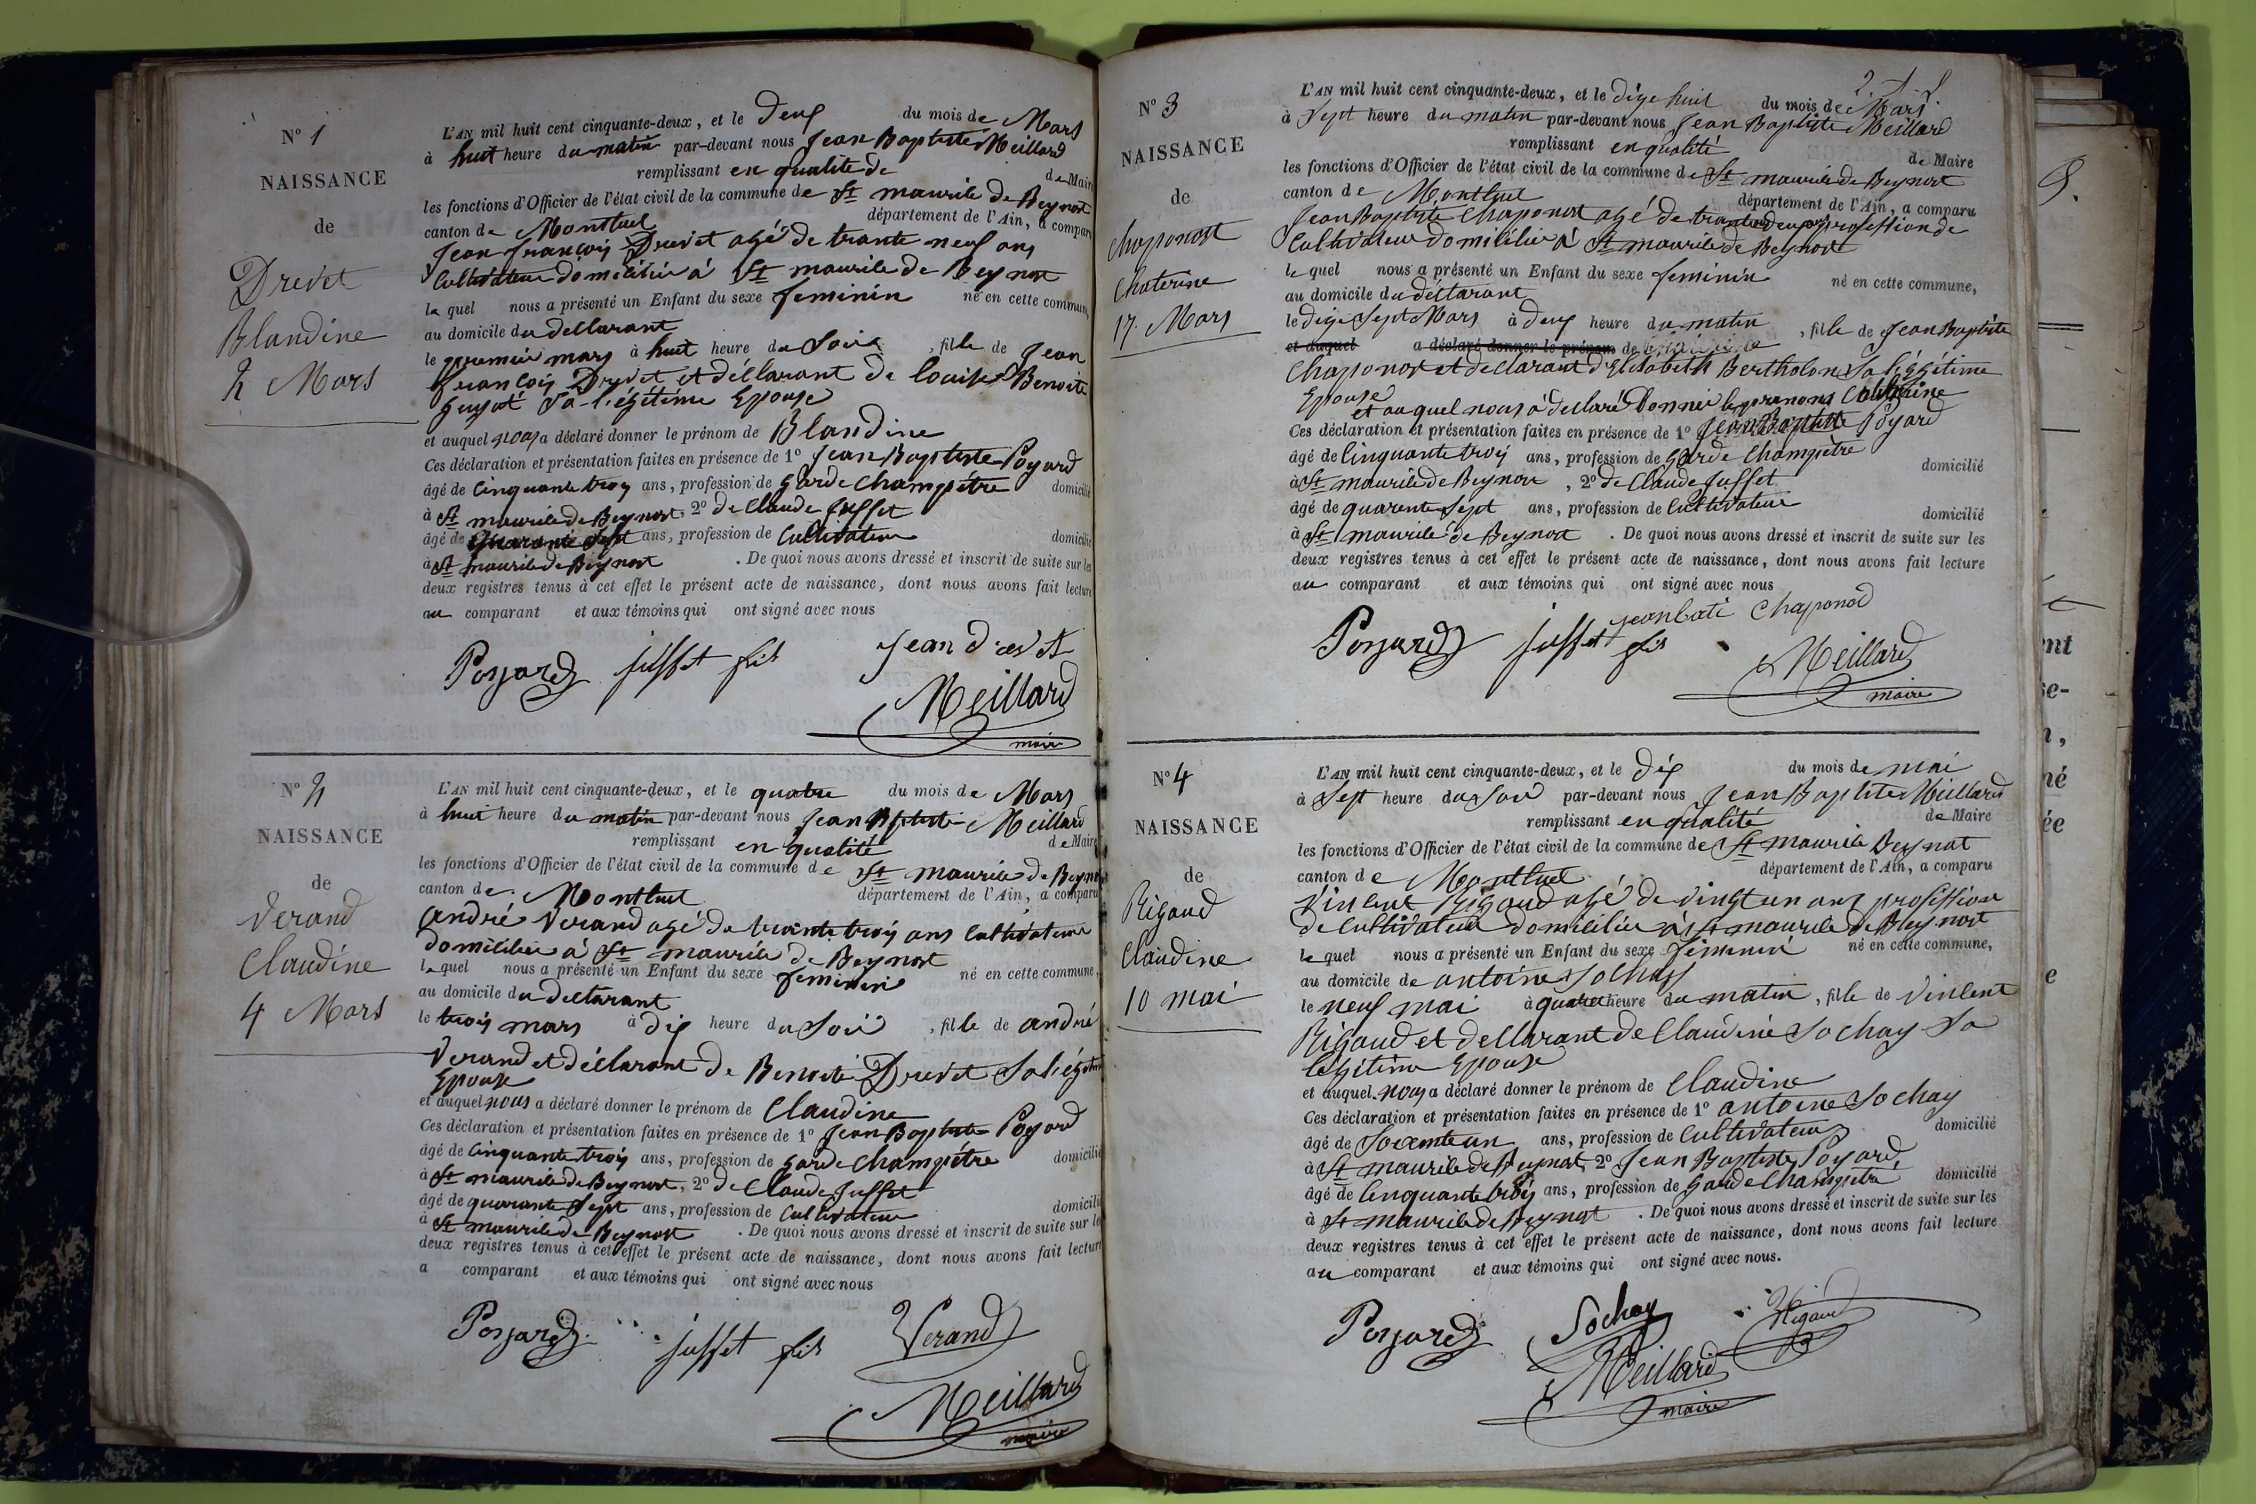 N° 1
NAISSANCE
de
Drevet
Blandine
2 Mars
L'AN mil huit cent cinquante-deux, et le Deux du mois de Mars
à huit heure du matin par-devant nous Jean Baptiste Meillard
remplissant en qualité de de Maire
les fonctions d'Officier de l'état civil de la commune de St maurice de Beynost
canton de Montluel département de l'Ain, a comparu
Jean françois Drevet agé de trante neuf ans
Cultivateur domicilié à St maurice de Beynost
le quel nous a présenté un Enfant du sexe feminin né en cette commune,
au domicile du decllarant
le premier mars à huit heure du Soir, fille de Jean
françois Drevet et décllarant de louise Benoite
Guyot Sa légitime Epouse
et auquel nous a déclaré donner le prénom de Blandine
Ces déclaration et présentation faites en présence de 1° Jean Baptiste Poyard
âgé de Cinquante trois ans, profession de Garde Champêtre domicilié
à St maurice de Beynost 2° de Claude Juffet
âgé de Quarante Sept ans, profession de Cultivateur domicilié
à St maurice de Beynost . De quoi nous avons dressé et inscrit de suite sur les
deux registres tenus à cet effet le présent acte de naissance, dont nous avons fait lecture
au comparant et aux témoins qui ont signé avec nous
Poyard juffet fils Jean drevet
Meillard
maire
N° 2
NAISSANCE
de
Verand
Claudine
4 Mars
L'AN mil huit cent cinquante-deux, et le quatre du mois de Mars
à huit heure du matin par-devant nous Jean Bptiste Meillard
remplissant en qualité de Maire
les fonctions d'Officier de l'état civil de la commune de St maurice de Beynost
canton de Montluel département de l'Ain, a comparu
André Verand agé de trante trois ans Cultivateur
domicilié à St maurice de Beynost
le quel nous a présenté un Enfant du sexe feminin né en cette commune,
au domicile du decllarant
le trois mars à dix heure du Soir, fille de andré
Verand et décllarant de Benoite Drevet Sa légitime
Epouse
et auquel nous a déclaré donner le prénom de Claudine
Ces déclaration et présentation faites en présence de 1° Jean Baptiste Poyard
âgé de Cinquante trois ans, profession de Garde Champêtre domicilié
à St maurice de Beynost, 2° de Claude Juffet
âgé de quarante Sept ans, profession de Cultivateur domicilié
à St maurice de Beynost . De quoi nous avons dressé et inscrit de suite sur les
deux registres tenus à cet effet le présent acte de naissance, dont nous avons fait lecture
a comparant et aux témoins qui ont signé avec nous
Poyard juffet fils Verand
Meillard
maire
N° 3
NAISSANCE
de
Chaponost
Chaterine
17 Mars
L'AN mil huit cent cinquante-deux, et le dixe huit du mois de Mars
à Sept heure du matin par-devant nous Jean Baptiste Meillard
remplissant en qualité de Maire
les fonctions d'Officier de l'état civil de la commune de St maurice de Beynost
canton de Montluel département de l'Ain, a comparu
Jean Baptiste Chaponost agé de trante deux profession de
Cultivateur domicilié à St maurice de Beynost
le quel nous a présenté un Enfant du sexe feminin né en cette commune,
au domicile du décllarant
le dixe Sept Mars à deux heure du matin, fille de Jean Baptiste
et auquel a déclaré donner le prénom de
Chaponost et decllarant d'Elisabeth Bertholon Sa légitime
Epouse
et auquel nous a decllaré Donner le prenoms Catherine
Ces déclaration et présentation faites en présence de 1° Jean Baptiste Poyard
âgé de Cinquante trois ans, profession de Garde Champêtre domicilié
à St maurice de Beynost, 2° de Claude Juffet
âgé de quarente Sept ans, profession de Cultivateur domicilié
à St maurice de Beynost . De quoi nous avons dressé et inscrit de suite sur les
deux registres tenus à cet effet le présent acte de naissance, dont nous avons fait lecture
au comparant et aux témoins qui ont signé avec nous
jeanbati chaponod
Poyard juffet fils
Meillard
maire
N° 4
NAISSANCE
de
Rigaud
Claudine
10 mai
L'AN mil huit cent cinquante-deux, et le dix du mois de mai
à Sept heure du Soir par-devant nous Jean Baptiste Meillard
remplissant en qualité de Maire
les fonctions d'Officier de l'état civil de la commune de St maurice Beynost
canton de Montluel département de l'Ain, a comparu
Vincent Rigaud agé de vingt un ans profession
de Cultivateur domicilié à St maurice de Beynost
le quel nous a présenté un Enfant du sexe féminin né en cette commune,
au domicile de antoine Sochay
le neuf mai à quatre heure du matin, fille de Vincent
Rigaud et decllarant de Claudine Sochay Sa
légitime Epouse
et auquel nous a déclaré donner le prénom de Claudine
Ces déclaration et présentation faites en présence de 1° antoine Sochay
âgé de Soixante un ans, profession de Cultivateur domicilié
à St maurice de Beynost, 2° Jean Baptiste Poyard
âgé de Cinquante trois ans, profession de Garde Champêtre domicilié
à St maurice de Beynost . De quoi nous avons dressé et inscrit de suite sur les
deux registres tenus à cet effet le présent acte de naissance, dont nous avons fait lecture
au comparant et aux témoins qui ont signé avec nous.
Poyard Sochay Rigaud
Meillard
maire